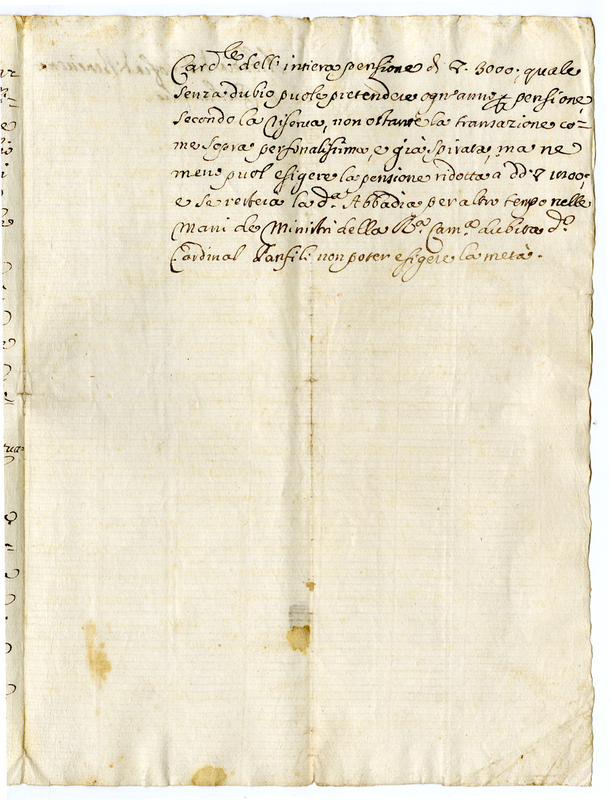 Card.le dell'intiera pensione di V. 3000; quale
senza dubio puole pretendere ogn'anno pensione,
secondo la riserva, non ostante la transazione co=
me sopra personalissima, e già spirata, ma ne
meno puol esigere la pensione ridotta a dd. V
e se resterà la d.ª Abbadia per altro tempo nelle
Mani de Ministri della R.ª Cam.ª dubita d.º
Cardinal Panfili non poter esigere la metà.